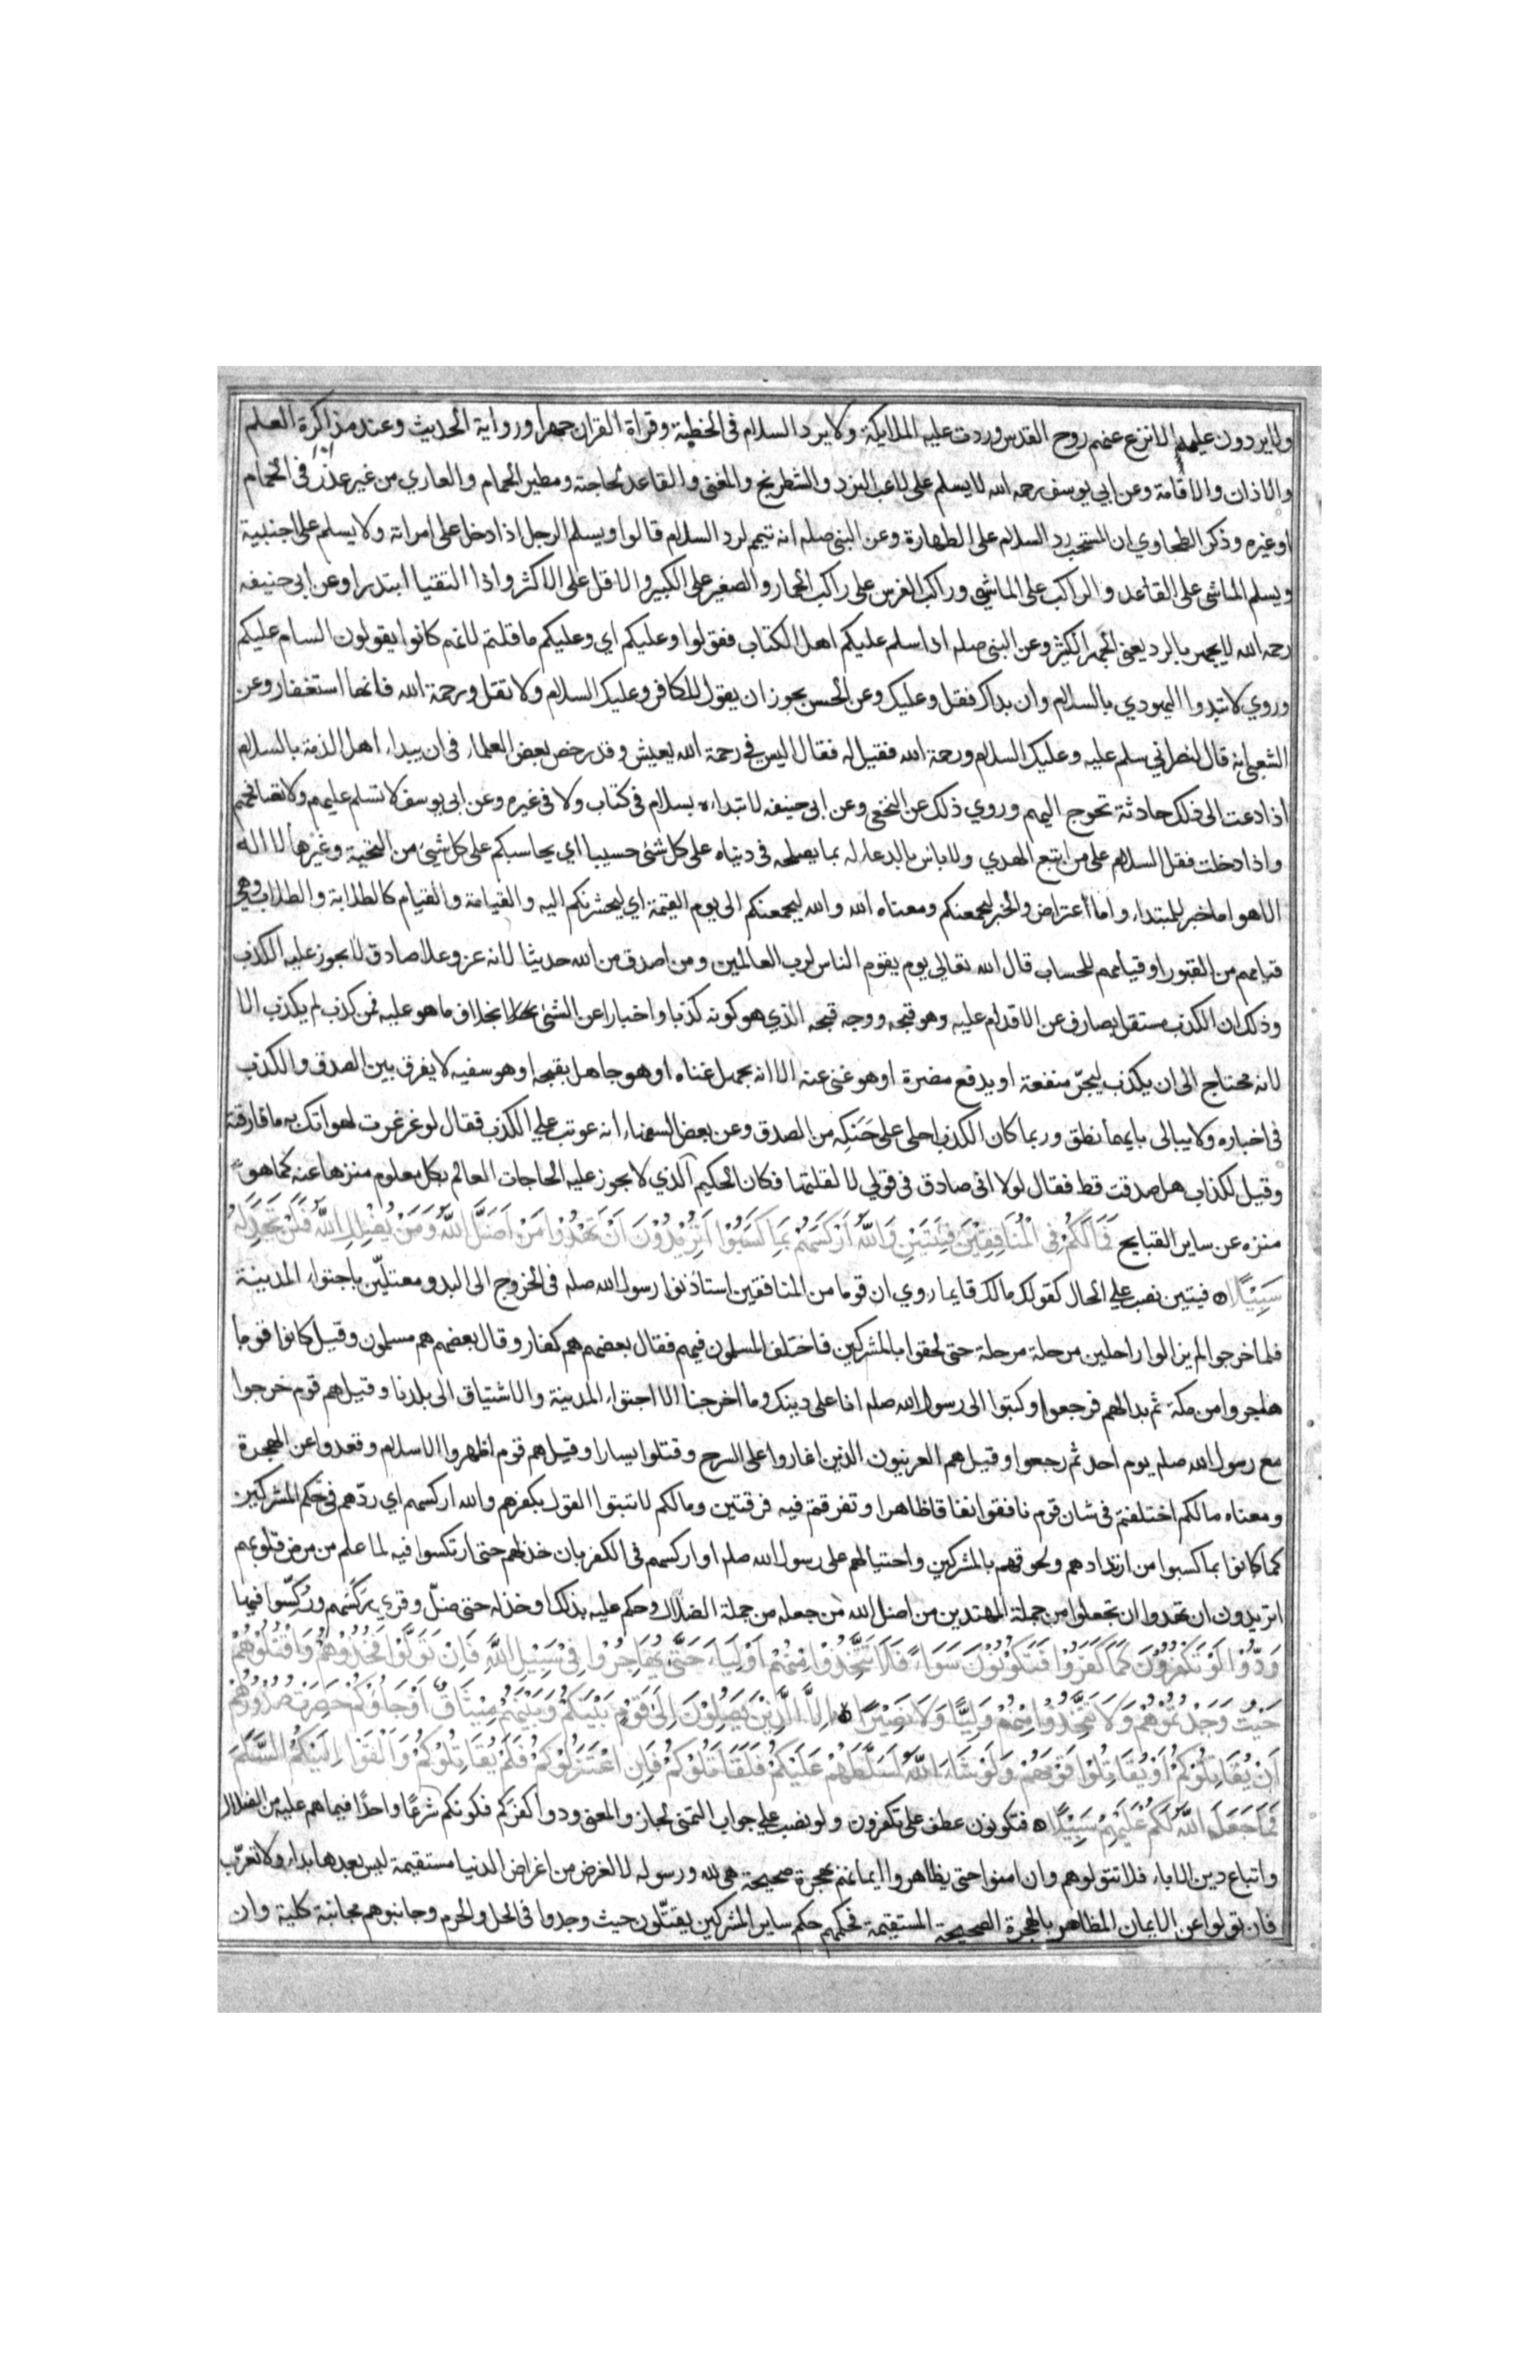 ولا يردون عليهم الا نزع عنهم روح القدس وردت عليه الملايكة ولا يرد السلام في الخطبة وقراة القران جهرا ورواية الحديث وعند مذاكرة العلم
والاذان والاقامة وعن ابي يوسف رحمه الله لا يسلم على لاعب النرد والشطرنج والمغنى والقاعد لحاجته ومطير الحمام والعاري من غير عذر في الحمام
او غيره وذكر الطحاوي ان المستحب رد السلام على الطهارة وعن النبى صلم انه تيمم لرد السلام قالوا ويسلم الرجل اذا دخل على امراته ولا يسلم على اجنبية
ويسلم الماشى على القاعد والراكب على الماشى وراكب الفرس على راكب الحمار والصغير على الكبير والاقل على الاكثر واذا التقيا ابتدرا وعن ابى حنيفه
رحمه الله لا يجهر بالرد يعنى الجهر الكثير وعن النبى صلم اذا سلم عليكم اهل الكتاب فقولوا وعليكم اي وعليكم ما قلتم لانهم كانوا يقولون السام عليكم
وروي لا تبدوا اليهودي بالسلام وان بداك فقل وعليك وعن الحسن يجوز ان يقول للكافر وعليك السلام ولا تقل ورحمة الله فانها استغفار وعن
الشعبى انه قال لنصراني سلم عليه وعليك السلام ورحمة الله فقيل له فقال اليس في رحمة الله يعيش وقد رخص بعض العلماء في ان يبداء اهل الذمة بالسلام
اذا دعت الى ذلك حادثة تحوج اليهم وروي ذلك عن النخعى وعن ابى حنيفه لا تبداه بسلام في كتاب ولا في غيره وعن ابى يوسف لا تسلم عليهم ولا تصافحهم
واذا دخلت فقل السلام على من اتبع الهدي ولا باس بالدعاء له بما يصلحه في دنياه على كل شئ حسيبا اي يحاسبكم على كل شئ من التحية وغيرها لا اله
الا هو اما خبر للمبتداء واما اعتراض والخبر ليجمعنكم ومعناه الله والله ليجمعنكم الى يوم القيمة اي ليحشرنكم اليه والقيامة والقيام كالطلابة والطلاب وهي
قيامهم من القبور او قيامهم للحساب قال الله تعالى يوم يقوم الناس لرب العالمين ومن اصدق من الله حديثا لانه عز وعلا صادق لا يجوز عليه الكذب
وذلك ان الكذب مستقل بصارف عن الاقدام عليه وهو قبحه ووجه قبحه الذي هو كونه كذبا واخبارا عن الشئ بخلاف ما هو عليه فمن كذب لم يكذب الا
لانه محتاج الى ان يكذب ليجر منفعة او يدفع مضرة او هو غنى عنه الا انه يجهل غناه او هو جاهل بقبحه او هو سفيه لا يفرق بين الصدق والكذب
في اخباره ولا يبالى بايهما نطق وربما كان الكذب احلى على حنكه من الصدق وعن بعض السفهاء انه عوتب على الكذب فقال لو غرغرت لهواتك به ما فارقته
وقيل لكذاب هل صدقت قط فقال لولا انى صادق في قولي لا لقلتها فكان الحكيم الذي لا يجوز عليه الحاجات العالم بكل معلوم منزها عنه كما هو
منزه عن ساير القبايح فَمَا لَكُمْ فِى الْمُنَافِقِيْنَ فِئَتَيْنِ وَاللّٰهُ اَرْكَسَهُمْ بِمَا كَسَبُوْا اَتُرِيْدُوْنَ اَنْ تَهْدُوْا مَنْ اَضَلَّ اللّٰهُ وَمَنْ يُضْلِلِ اللّٰهُ فَلَنْ تَجِدَ لَهُ
سَبِيْلًا فيتين نصب على الحال كقولك مالك قايما روي ان قوما من المنافقين استاذنوا رسول الله صلم في الخروج الى البدو معتلّين باجتواء المدينة
فلما خرجوا لم يزالوا راحلين مرحلة مرحلة حتى لحقوا بالمشركين فاختلف المسلمون فيهم فقال بعضهم هم كفار وقال بعضهم هم مسلمون وقيل كانوا قوما
هاجروا من مكة ثم بدا لهم فرجعوا وكتبوا الى رسول الله صلم انا على دينك وما اخرجنا الا اجتواء المدينة والاشتياق الى بلدنا وقيل هم قوم خرجوا
مع رسول الله صلم يوم احد ثم رجعوا وقيل هم العرنيون الذين اغاروا على السرح وقتلوا يسارا وقيل هم قوم اظهروا الاسلام وقعدوا عن الهجرة
ومعناه مالكم اختلفتم في شان قوم نافقوا نفاقا ظاهرا وتفرقتم فيه فرقتين ومالكم لا تبتوا القول بكفرهم والله اركسهم اي ردّهم في حكم المشركين
كما كانوا بما كسبوا من ارتدادهم ولحوقهم بالمشركين واحتيالهم على رسول الله صلم او اركسهم في الكفر بان خذلهم حتى ارتكسوا فيه لما علم من مرض قلوبهم
اتريدون ان تهدوا ان تجعلوا من جملة المهتدين من اضل الله من جعله من جملة الضلال وحكم عليه بذلك او خذله حتى ضلّ وقري ركسهم وركّسوا فيها
وَدُّوْا لَوْ تَكْفُرُوْنَ كَمَا كَفَرُوْا فَتَكُوْنُوْنَ سَوَاءً فَلَا تَتَّخِذُوْا مِنْهُمْ اَوْلِيَاءَ حَتّٰى يُهَاجِرُوْا فِىْ سَبِيْلِ اللّٰهِ فَاِنْ تَوَلَّوْا فَخُذُوْهُمْ وَاقْتُلُوْهُمْ
حَيْثُ وَجَدْتُمُوْهُمْ وَلَا تَتَّخِذُوْا مِنْهُمْ وَلِيًّا وَلَا نَصِيْرًا اِلَّا الَّذِيْنَ يَصِلُوْنَ اِلٰى قَوْمٍ بَيْنَكُمْ وَبَيْنَهُمْ مِيْثَاقٌ اَوْ جَاؤُكُمْ حَصِرَتْ صُدُوْرُهُمْ
اَنْ يُقَاتِلُوْكُمْ اَوْ يُقَاتِلُوْا قَوْمَهُمْ وَلَوْ شَاءَ اللّٰهُ لَسَلَّطَهُمْ عَلَيْكُمْ فَلَقَاتَلُوْكُمْ فَاِنِ اعْتَزَلُوْكُمْ فَلَمْ يُقَاتِلُوْكُمْ وَاَلْقَوْا اِلَيْكُمُ السَّلَمَ
فَمَا جَعَلَ اللّٰهُ لَكُمْ عَلَيْهِمْ سَبِيْلًا فتكونون عطف على تكفرون ولو نصب على جواب التمنى لجاز والمعنى ودوا كفركم فكونكم شرعًا واحدًا فيما هم عليه من الضلال
واتباع دين الاباء فلا تتولوهم وان امنوا حتى يظاهروا ايمانهم بهجرة صحيحة هى لله ورسوله لا لغرض من اغراض الدنيا مستقيمة ليس بعدها بداء ولا تعرّب
فان تولوا عن الايمان المظاهر بالهجرة الصحيحة المستقيمة فحكمهم حكم ساير المشركين يقتّلون حيث وجدوا في الحل والحرم وجانبوهم مجانبة كلية وان